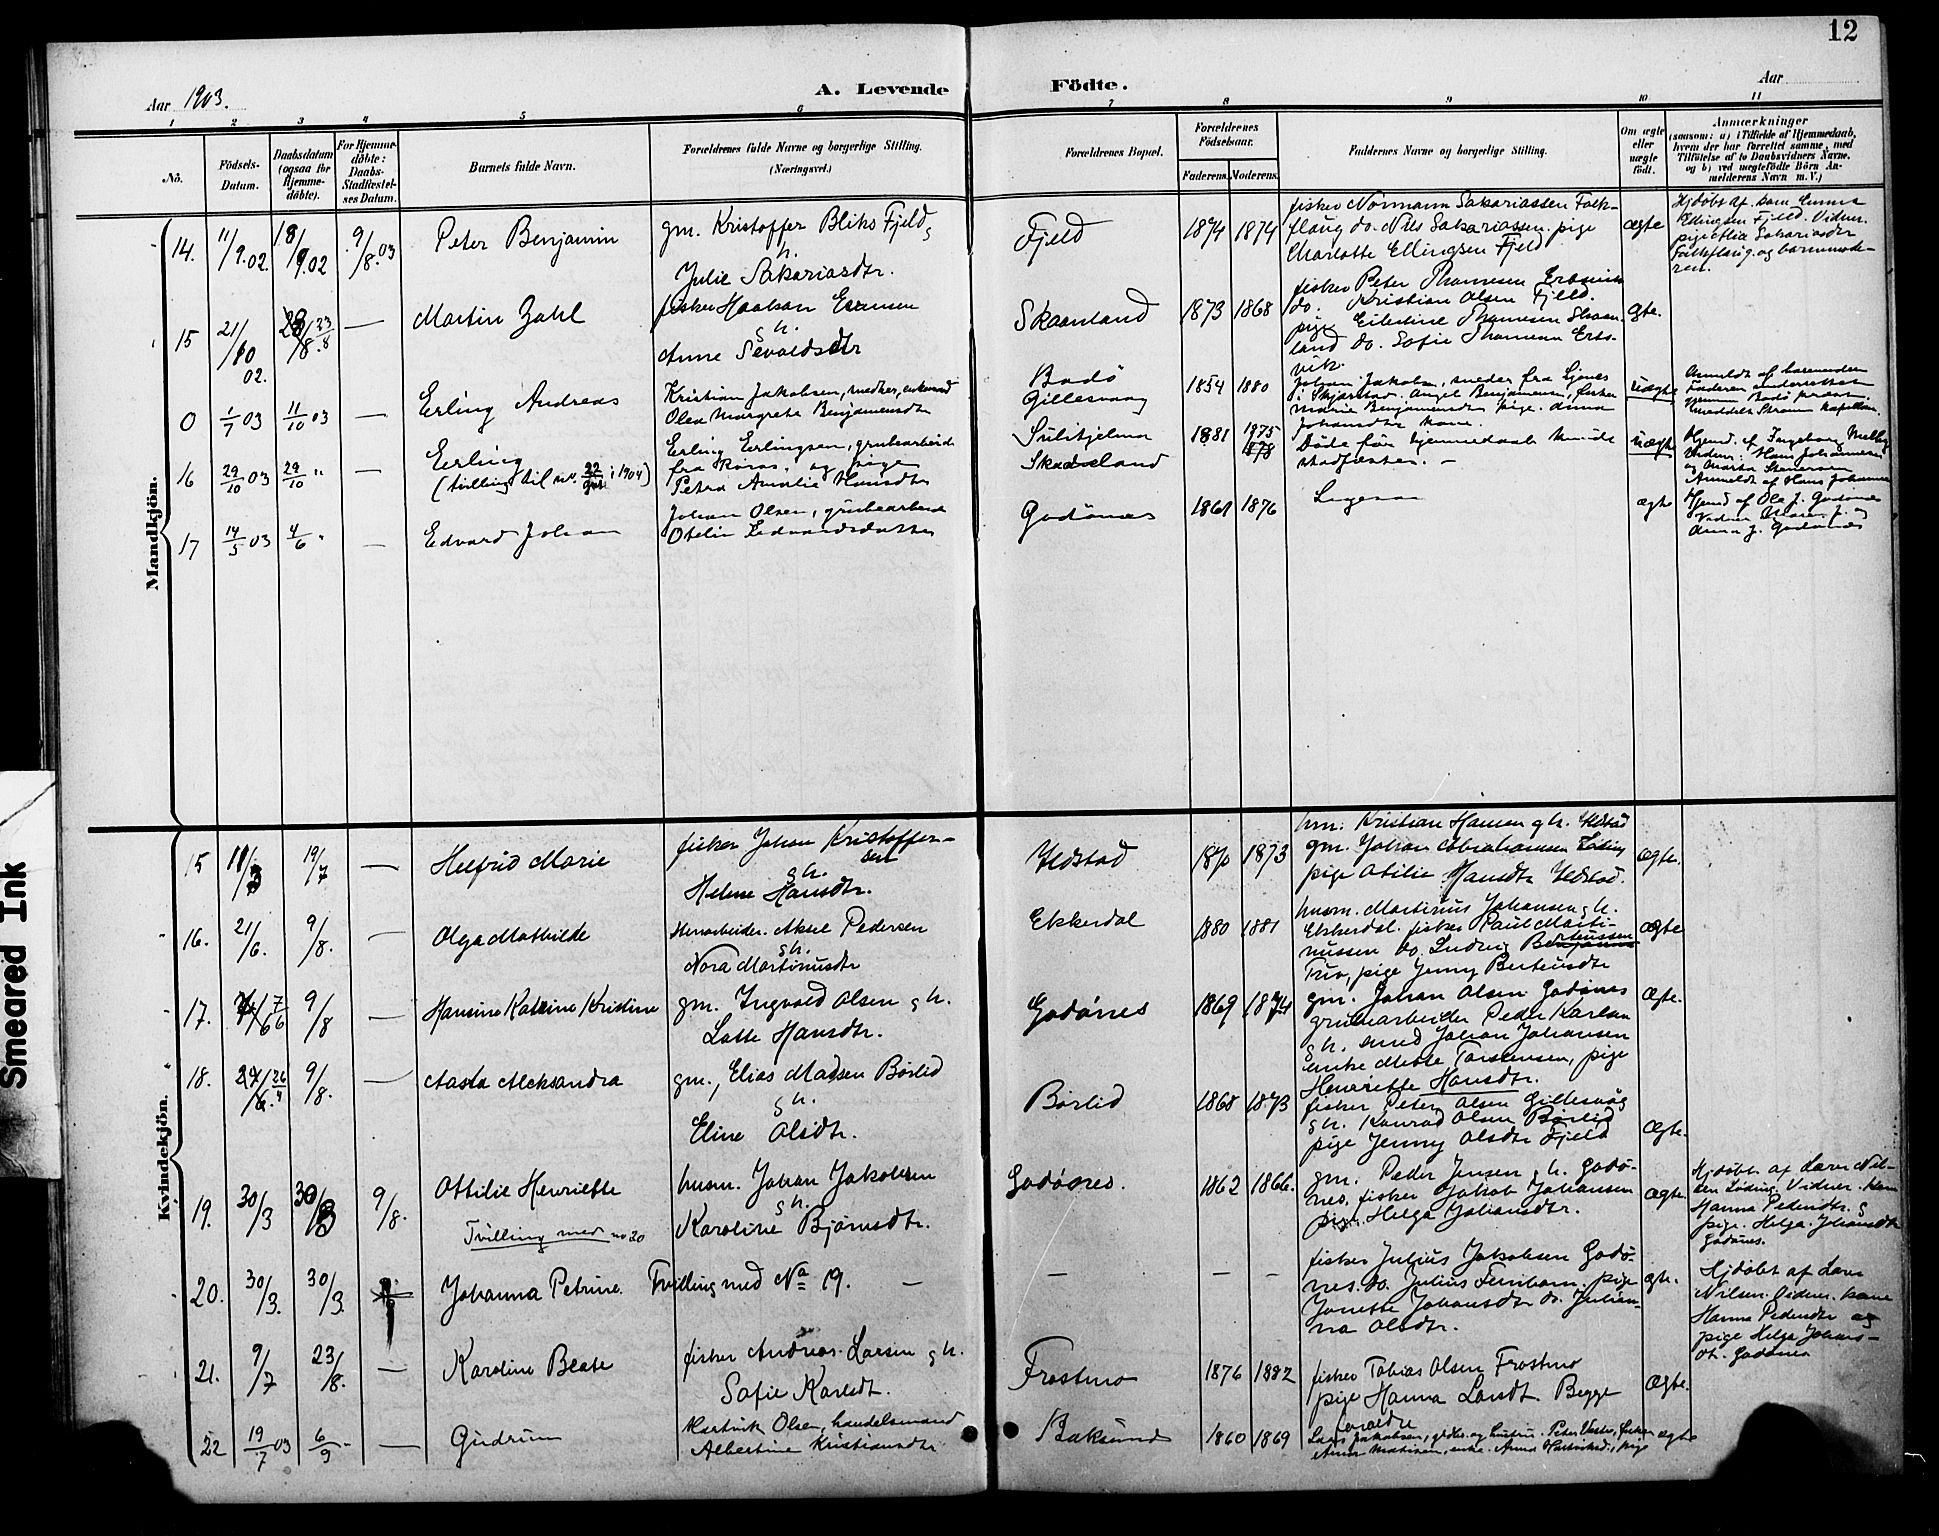 12
Aar 1903.
A. Levende Födte.
Aar
1 2 3 4 5 6 7 8 9 10 11
Nö.
Födsels-Datum.
Daabsdatum (ogsaa for Hjemme-döbte).
For Hjemme-döbte: Daabs-Stadfæstel-ses Datum.
Barnets fulde Navn.
Forældrenes fulde Navne og borgerlige Stilling.
(Næringsvei.)
Forældrenes Bopæl.
Forældrenes Födselsaar.
Faderens. Moderens.
Faddernes Navne og borgerlige Stilling.
Om ægte eller uægte födt.
Anmærkninger
(saasom: a) i Tilfælde af Hjemmedaab, hvem der har forrettet samme, med Tilföielse af to Daabsvidners Navne, og b) ved uægtefödte Börn An-melderens Navn m. V.)
Mandkjön.
14. 11/9.02 18/9.02 9/8.03 Peter Benjamin
gm. Kristoffer Bliks Fjeld
g h.
Julie Sakariasdtr.
Fjeld 1874 1874
fisker Normann Sakariassen Falk-
flaug do. Nils Sakariassen. pige
Charlotte Ellingsen Fjeld
ægte
Hjdöbt af
Ellingsen Fjeld. Vidner.
pige Sakariasdtr
Falkflaug. og barnemode-
ren.
15 21/10 02. 23/8. — Martin Zahl
fisker Haakon
g h.
Anne Sevaldsdtr
Skaanland 1873 1868
fisker Peter Thomesen
do. Kristian Olsen Fjeld.
pige Eilertine Thomesen Skaan-
land do. Sofie Thomesen Erts-
vik.
ægte.
0 1/7 03 11/10 03 — Erling Andreas
Kristian Jakobsen,
Olea Margrete Benjaminsdtr
Bodö
Gillesvaag 1854 1880
Johan Jakobsen, fra
i Skjerstad. Angel Benjaminsen, fisker
Marie Benjaminsdtr pige. Anna
Johansdtr kone.
uægte
Anmeldt af barnemoderen
Faderen underrettet
gjennem Bodö
16 29/10 03 29/10 " — Erling
(tvilling til nr. 22 i 1904)
Erling Erlingsen, grubearbeider
fra Röros, og pige
Petra Amalie Hansdtr
Sulitjelma
Skaanland 1881 1875
Döde för hjemmedaab kunde
stadfæstes. —
uægte
Hjemd. af Ingeborg Melby
Vidner: Hans Johannesen
og Marta
Anmeldt af Hans Johannesen
17 14/5 03 4/6 " — Edvard Johan
Johan Olsen, grubearbeider
Otelie Edvardsdatter
Godönes 1861 1876
Ingen
ægte
Hjemd af Ole J. Godönes
Vidner J. og
Anna J. Godönes
Kvindekjön.
15 11/3 19/7 — Helfrid Marie
fisker Johan Kristoffer-
sen
g h.
Helene Hansdtr.
Vedstad 1870 1873
hm. Kristian Hansen g h. Vedstad
gm. Johan Abrahamsen Löding
pige Otilie Hansdtr Vedstad.
ægte.
16. 21/6. 9/8. — Olga Mathilde
Stenarbeider. Aksel Pedersen
g h.
Nora Martinusdtr
Ekkerdal 1880 1881
husm. Martinus Johansen g h.
Ekkerdal. fisker Paul Marti-
nussen do. Ludvig Berteussen
Tuv, pige Jenny Berteusdtr
ægte
17. 7/6 9/8 — Hansine Katrine Kristine
gm. Ingvald Olsen g h.
Lotte Hansdtr.
Godönes 1869 1874
gm. Johan Olsen Godönes
grubearbeider Peder Karlsen
g h. smed Johan Johansen
enke Mette Torstensen, pige
Henriette Hansdtr.
ægte.
18. 26/4 9/8. — Aasta Aleksandra
gm., Elias Madsen Börlid
g h.
Eline Olsdtr.
Börlid 1868 1873
fisker Peter Olsen Gillesvåg
g h. Konrad Olsen Börlid
pige Jenny Olsdtr Fjeld
ægte.
19. 30/3 30/3 9/8. Ottilie Henriette
Tvilling med no 20
husm. Johan Jakobsen
g h.
Karoline Bjönnsdtr.
Godönes. 1862 1866.
gm. Peder Jensen g h. Godö-
nes, fisker Jakob Johansen
pige Helga Johansdtr.
ægte.
Hjdöbt af Lars Nil-
sen Löding. Vidner. kone
Hanna Pedersdtr. g
pige. Helga Johansdtr
Godönes.
20. 30/3. 30/3. Johanna Petrine. Tvilling med No 19. — — — —
fisker Julius Jakobsen Godö-
nes. do. Julius pige
Jonette Johansdtr do. Julian-
na Olsdtr.
ægte.
Hjdöbt af Lars
Nilsen. Vidner. kone
Hanna Pedersdtr og
pige Helga Johans-
dt. Godönes
21. 9/7 23/8. — Karoline Beate
fisker Andreas Larsen g h.
Sofie Karlsdt.
Frostmo 1876 1882
fisker Tobias Olsen Frostmo
pige Hanna Larsdt. Begge
forældre
ægte.
22 19/7 03 6/9 " — Gudrun
Hartvik Olsen, handelsmand
Albertine Kristiansdtr
Baksund 1860 1869
Lars Jakobsen, gdbr. og hustru. Peter fisker
Anna enke. Anna pige
ægte
Smeared Ink